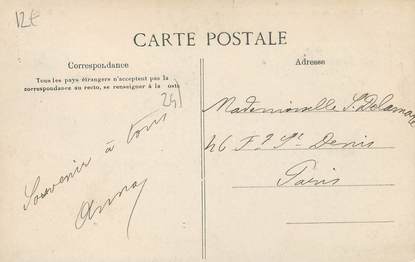 12€
CARTE POSTALE
Correspondance
Tous les pays étrangers n'acceptent pas la
correspondance au recto, se renseigner à la
24
Souvenir à tous
Anna
Adresse
Mademoiselle S. Delamare
46 Fg St Denis
Paris